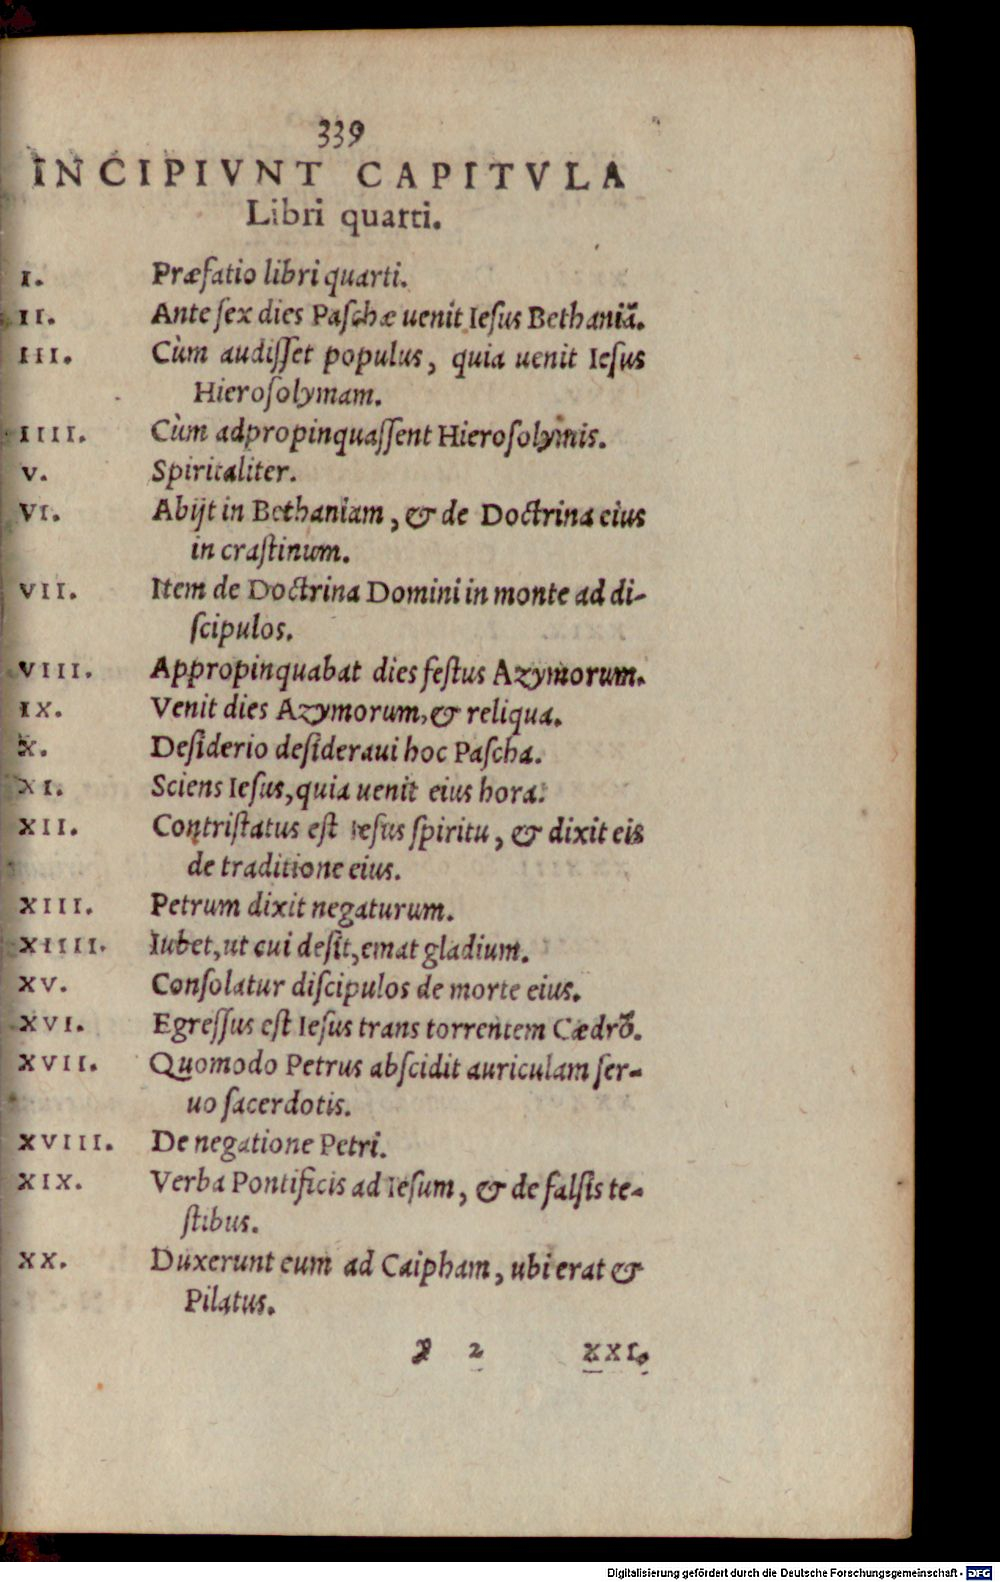 339
INCIPIVNT CAPITVLA
Libri quarti.
I. Præfatio libri quarti.
II. Ante sex dies Paschæ uenit Iesus Bethaniã.
III. Cùm audisset populus, quia uenit Iesus
Hierosolymam.
IIII. Cùm adpropinquassent Hierosolymis.
V. Spiritaliter.
VI. Abijt in Bethaniam, & de Doctrina eius
in crastinum.
VII. Item de Doctrina Domini in monte ad di-
scipulos.
VIII. Appropinquabat dies festus Azymorum.
IX. Venit dies Azymorum, & reliqua.
X. Desiderio desideraui hoc Pascha.
XI. Sciens Iesus, quia uenit eius hora.
XII. Contristatus est Iesus spiritu, & dixit eis
de traditione eius.
XIII. Petrum dixit negaturum.
XIIII. Iubet, ut cui desit, emat gladium.
XV. Consolatur discipulos de morte eius.
XVI. Egressus est Iesus trans torrentem Cædrõ.
XVII. Quomodo Petrus abscidit auriculam ser-
uo sacerdotis.
XVIII. De negatione Petri.
XIX. Verba Pontificis ad Iesum, & de falsis te-
stibus.
XX. Duxerunt eum ad Caipham, ubi erat &
Pilatus.
2 XXI.
Digitalisierung gefördert durch die Deutsche Forschungsgemeinschaft - DFG